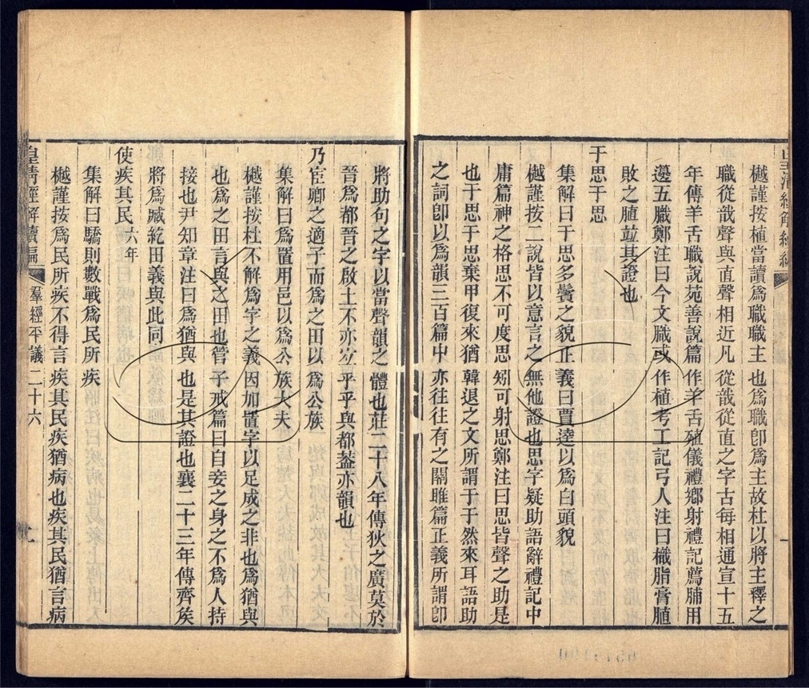 樾謹按植當讀爲職職主也爲職卽爲主故杜以將主釋之
職從戠聲與直聲相近凡從戠從直之字古每相通宣十五
年傳羊舌職說苑善說篇作羊舌殖儀禮鄉射禮記薦脯用
邊五職鄭注曰今文職或作植考工記弓人注曰樴脂膏䐈
敗之䐈竝其證也
于思于思
集解曰于思多鬢之貌正義曰賈逵以爲白頭貌
樾謹按二說皆以意言之無他證也思字疑助語辭禮記中
庸篇神之格思不可度思矧可射思鄭注曰思皆聲之助是
也于思于思棄甲復來猶韓退之文所謂于于然來耳語助
之詞卽以爲韻三百篇中亦往往有之關雎篇正義所謂卽
將助句之字以當聲韻之體也莊二十八年傳狄之廣莫於
晉爲都晉之啟土不亦宜乎乎與都葢亦韻也
乃宦卿之適子而爲之田以爲公族
集解曰爲置用邑以爲公族大夫
樾謹按杜不解爲字之義因加置字以足成之非也爲猶與
也爲之田言與之田也管子戒篇曰自妾之身之不爲人持
接也尹知章注曰爲猶與也是其證也襄二十三年傳齊矦
將爲臧紇田義與此同
使疾其民六年
集解曰驕則數戰爲民所疾
樾謹按爲民所疾不得言疾其民疾猶病也疾其民猶言病
皇清經解續編
羣經平議二十六